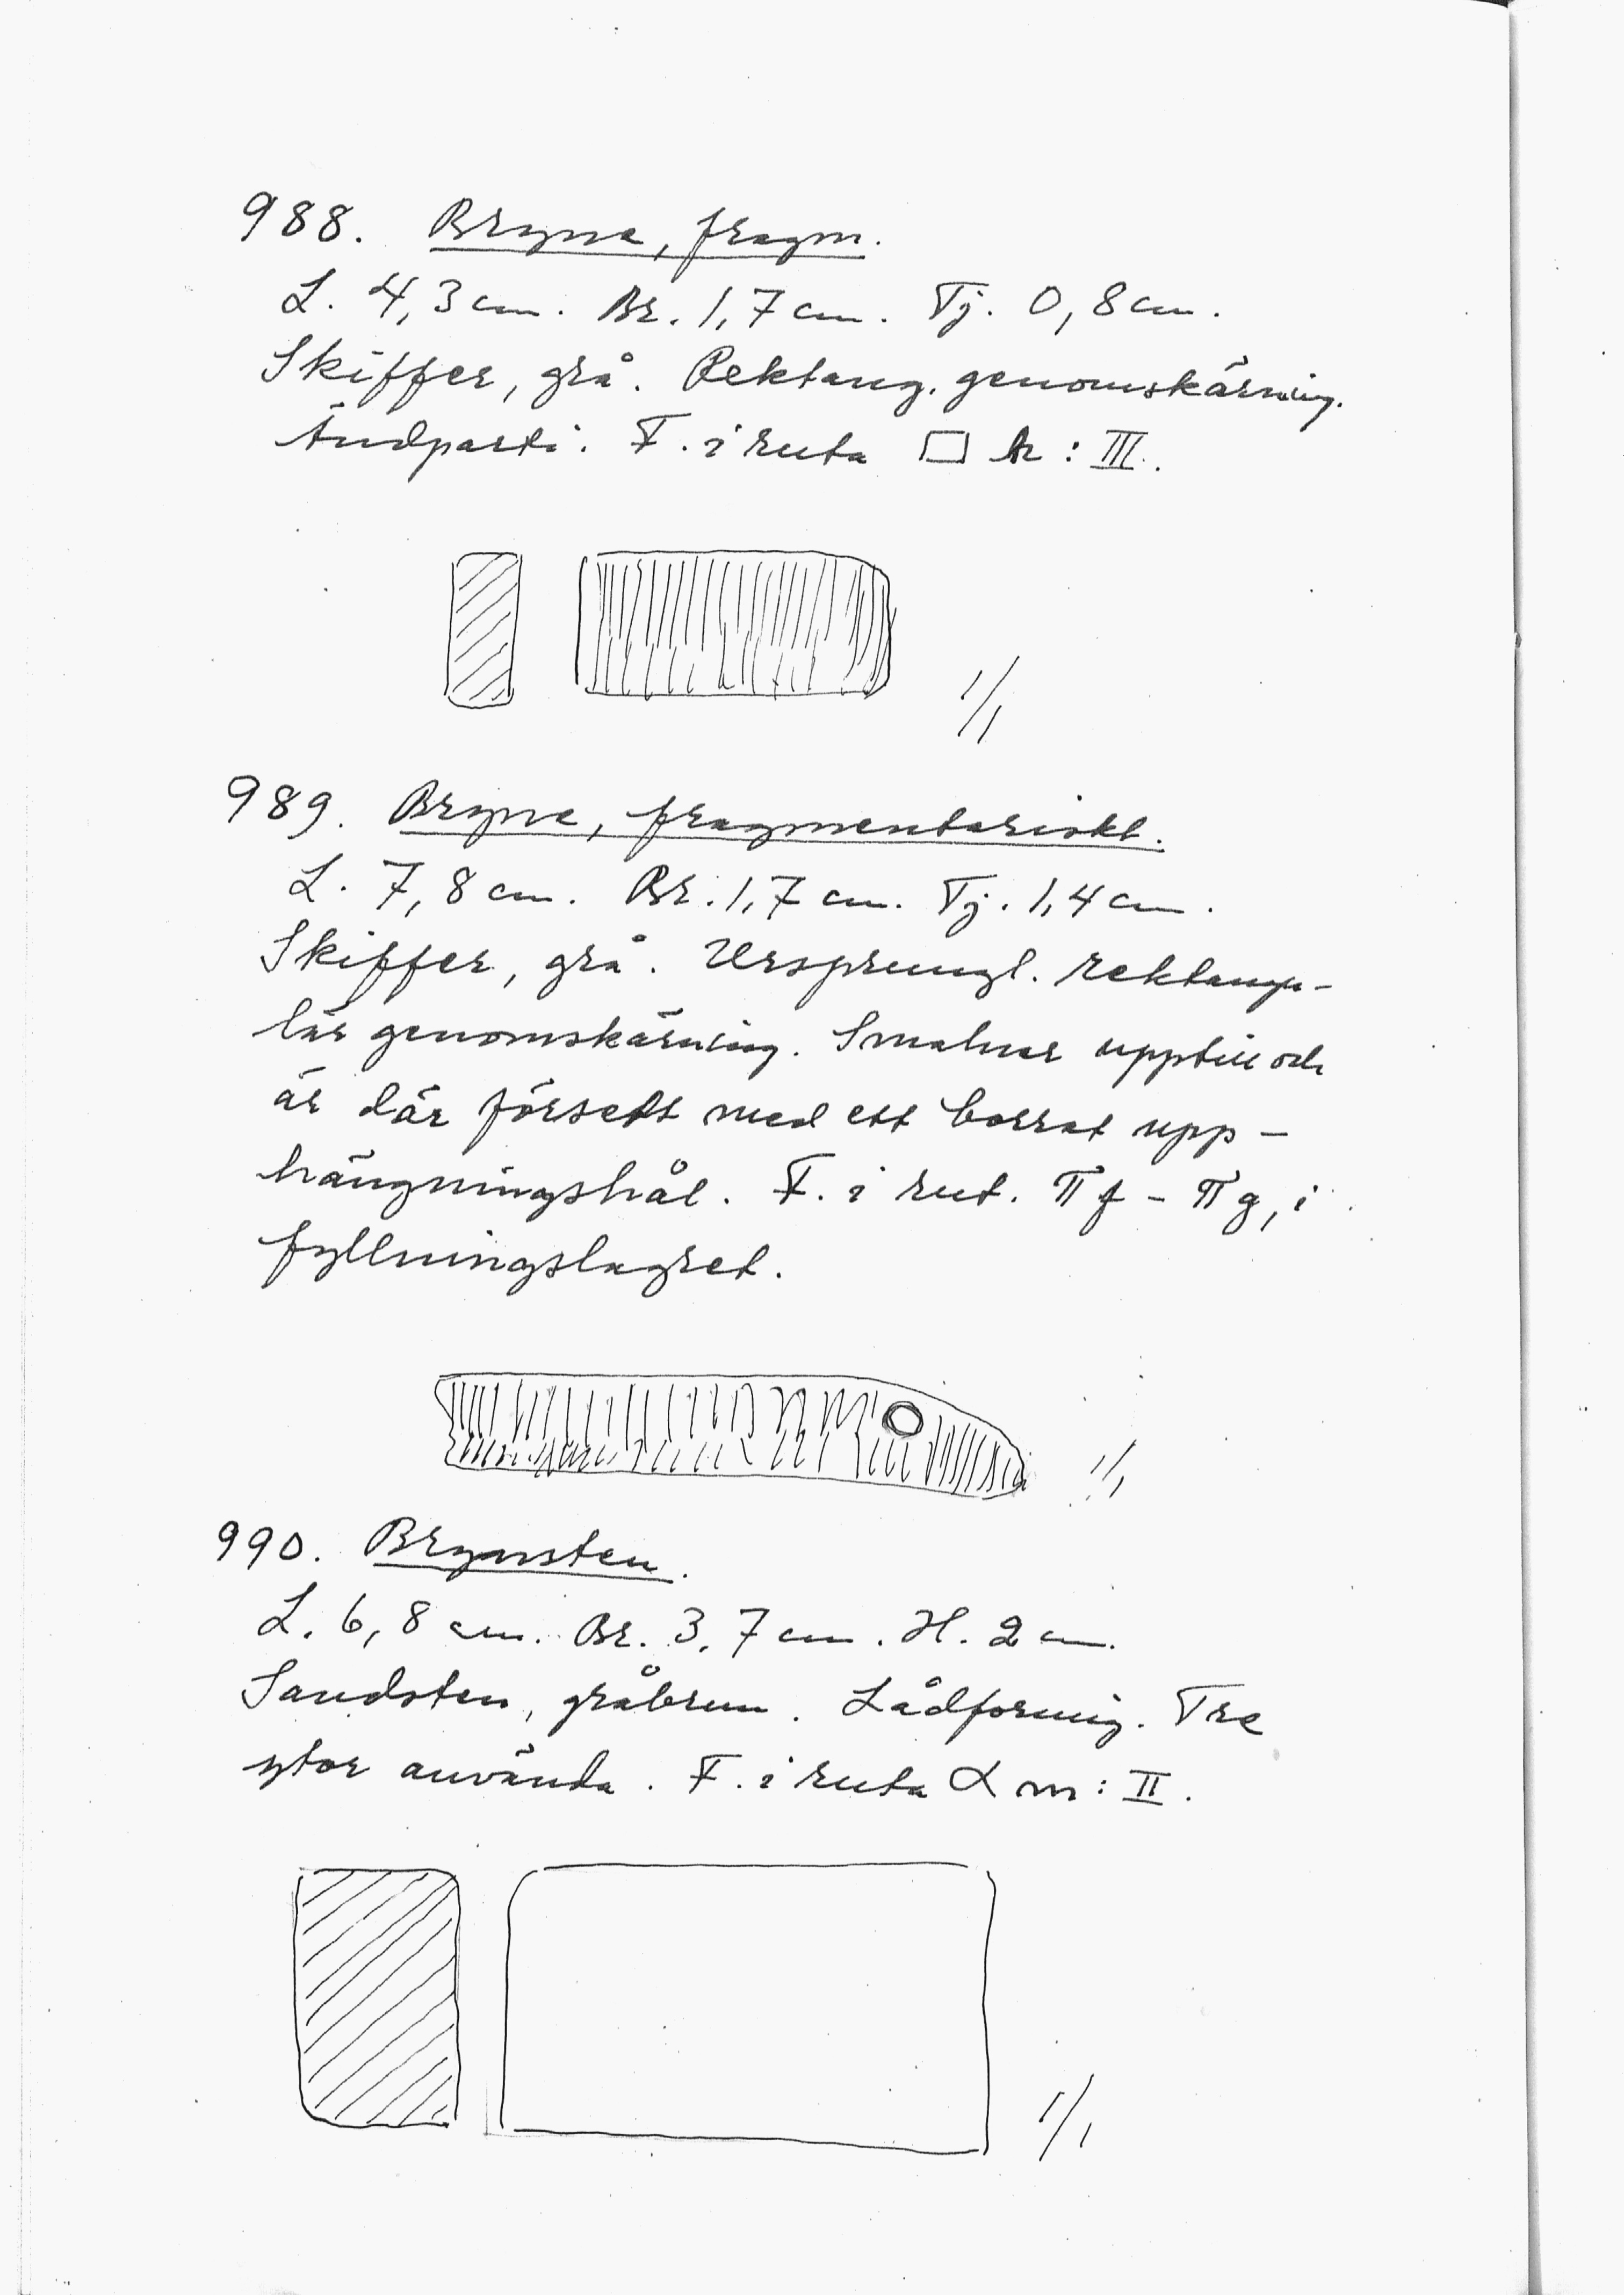 988. Bryne, fragm.
L. 4,3 cm. Br. 1,7 cm. Tj. 0,8 cm.
Skiffer, grå. Rektang. genomskärning.
Ändparti. F. i ruta □ h : III.
1/1
989. Bryne, fragmentariskt.
L. 7,8 cm. Br. 1,7 cm. Tj. 1,4 cm.
Skiffer, grå. Ursprungl. rektangu-
lär genomskärning. Smalnar upptill och
är där försett med ett borrat upp-
hängningshål. F. i rut. π f - π g, i
fyllningslagret.
1/1
990. Brynsten.
L. 6,8 cm. Br. 3,7 cm. H. 2 cm.
Sandsten, gråbrun. Lådformig. Tre
ytor använda. F. i ruta α m : II.
1/1